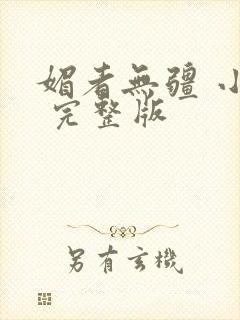 媚者無疆 小
完整版
另有玄機